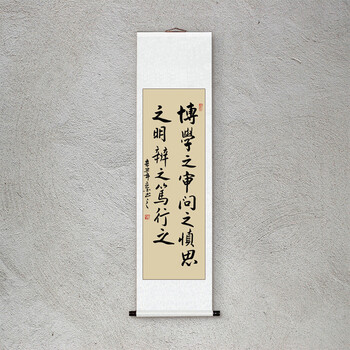 博学之审问之慎思
之明辨之笃行之